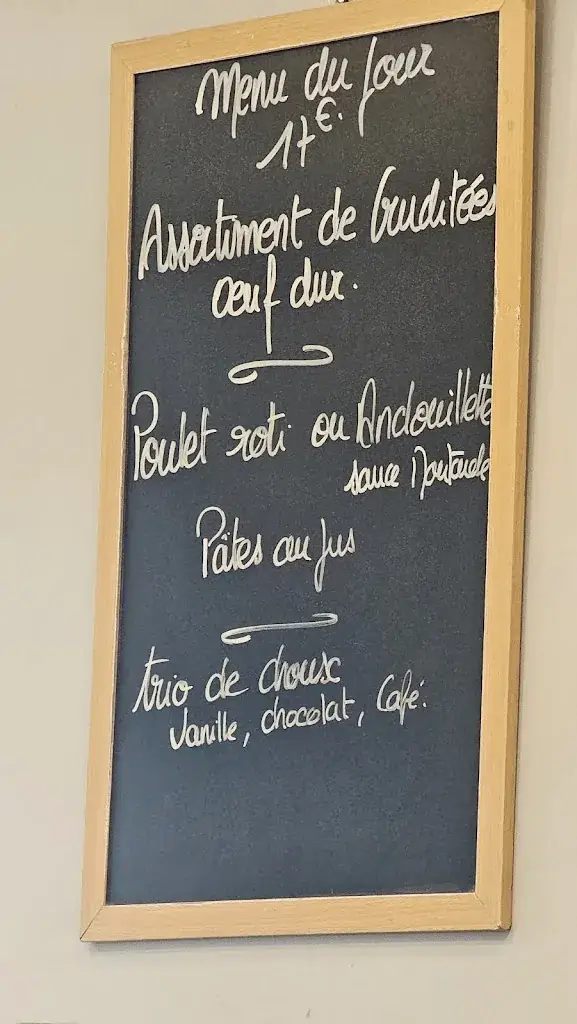 Menu du Jour
17€.
Assortiment de Cruditées
oeuf dur.
Poulet roti ou Andouillette
sauce Moutarde
Pâtes au Jus
trio de choux
Vanille, chocolat, Café.